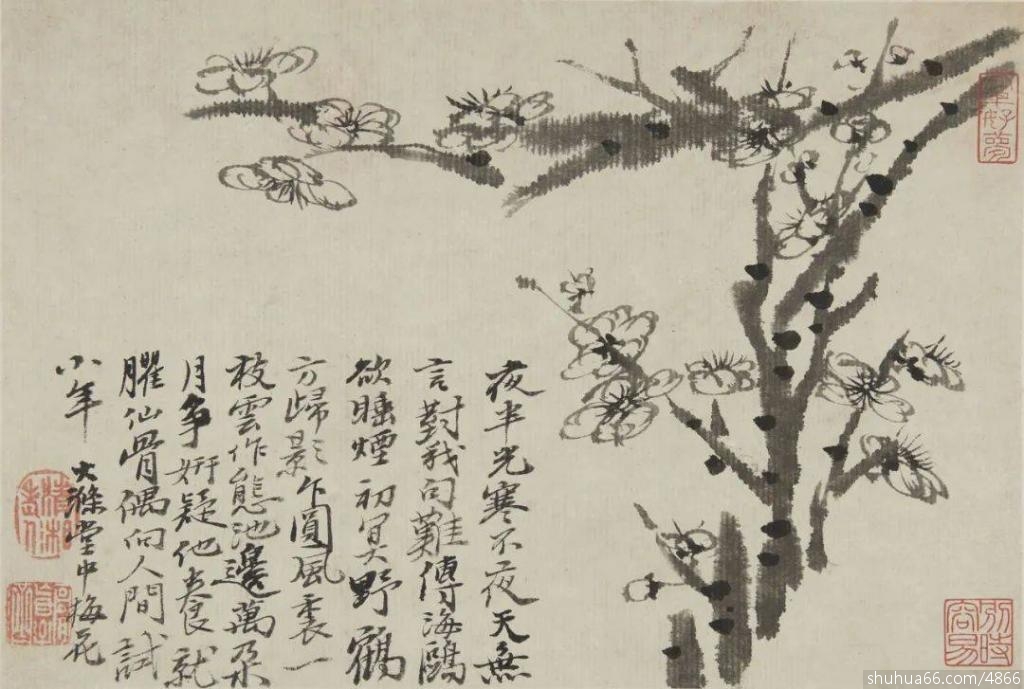 夜半光寒不夜天無
言對我句難傳海鷗
欲睡煙初冥野鶴
方歸影乍圓風裊一
枝雲作態池邊萬朵
月爭妍疑他養就
臞仙骨偶向人間試
小年
大滌堂中梅花
好夢
別時容易
清湘老人
shuhua66.com/4866